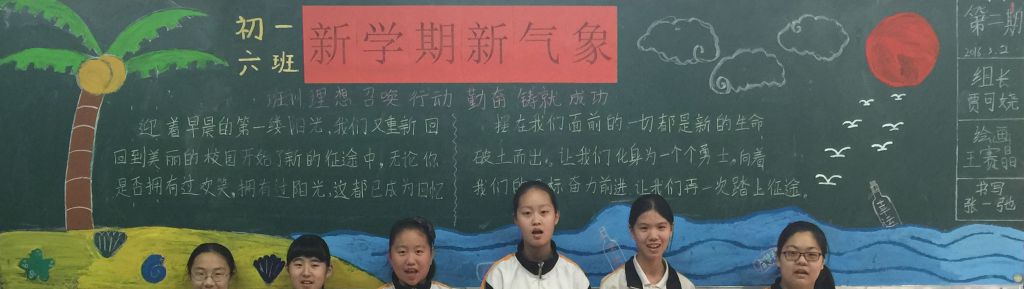 初一
六班
新学期新气象
班训 理想召唤行动 勤奋铸就成功
迎着早晨的第一缕阳光，我们又重新回
回到美丽的校园开始了新的征途中，无论你
是否拥有过欢笑，拥有过阳光，这都已成为回忆
摆在我们面前的一切都是新的生命
破土而出。让我们化身为一个个勇士。向着
我们的目标奋力前进 让我们再一次踏上征途。
第二期
组长
贾可娆
绘画
王赛晶
书写
张一弛